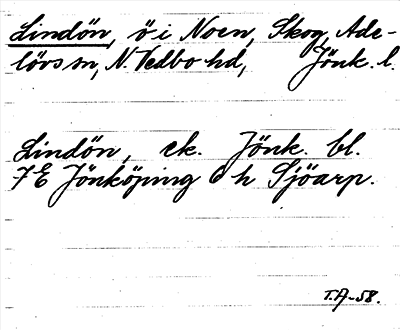 Lindön, ö i Noen, Skog, Ade-
lövs sn, N. Vedbo hd, Jönk. l.
Lindön, ek. Jönk. bl.
7E Jönköping o h Sjöarp.
T.A-58.